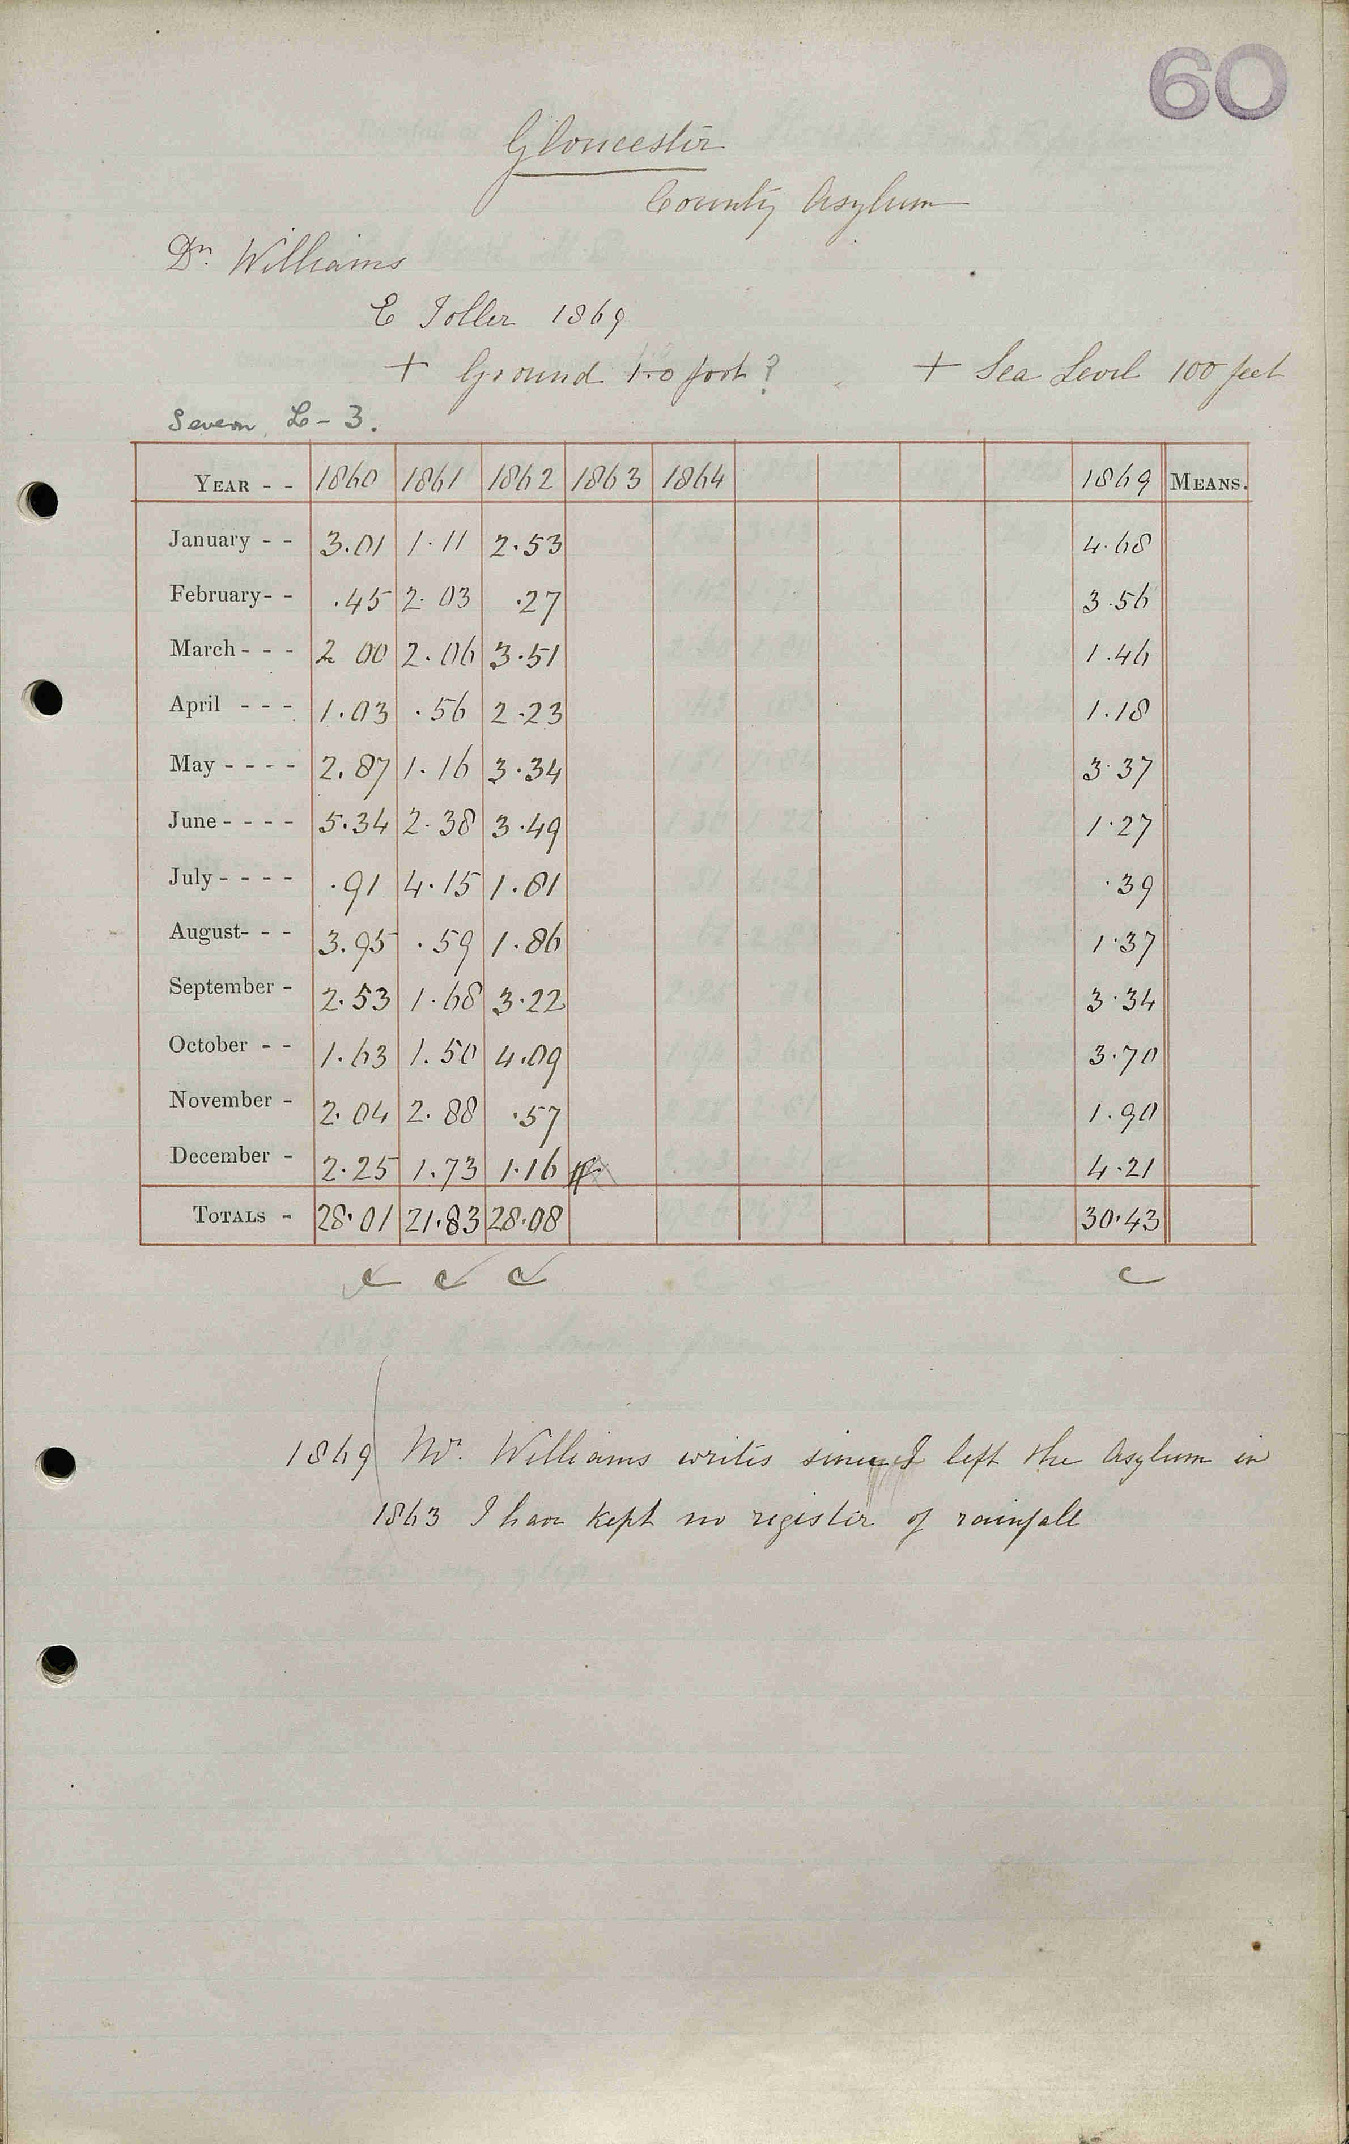 60
Gloucester
County Asylum
Dr. Williams
E Toller 1869
+ Ground 1.0 foot ? + Sea Level 100 feet
Severn L-3.
YEAR - - 1860 1861 1862 1863 1864 1869 MEANS.
January - - 3.01 1.11 2.53 4.68
February- - .45 2.03 .27 3.56
March - - - 2 00 2.06 3.51 1.46
April - - - 1.03 .56 2.23 1.18
May - - - - 2.87 1.16 3.34 3.37
June - - - - 5.34 2.38 3.49 1.27
July - - - - .91 4.15 1.81 .39
August- - - 3.95 .59 1.86 1.37
September - 2.53 1.68 3.22 3.34
October - - 1.63 1.50 4.09 3.70
November - 2.04 2.88 .57 1.90
December - 2.25 1.73 1.16 4.21
TOTALS - 28.01 21.83 28.08 30.43
c c c c
1869 Mr. Williams writes since I left the Asylum in
1863 I have kept no register of rainfall